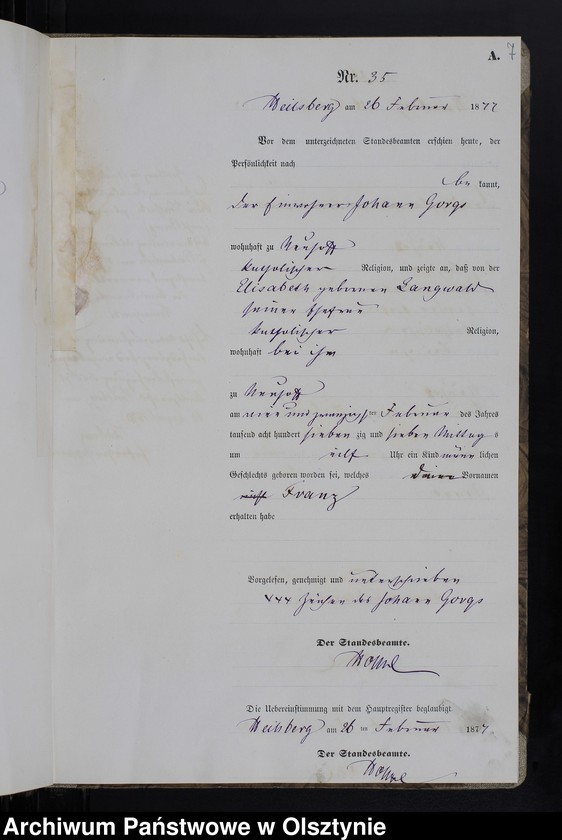 A. 7
Nr. 35
Heilsberg am 26 Februar 1877
Vor dem unterzeichneten Standesbeamten erschien heute, der
Persönlichkeit nach
be kannt,
der Einwohner Johann Gorgs
wohnhaft zu Neuhoff
katholischer Religion, und zeigte an, daß von der
Elisabeth geborenen Langwald
seiner Ehefrau
katholischer Religion,
wohnhaft bei ihm
zu Neuhoff
am und zwanzigsten Februar des Jahres
tausend acht hundert sieben zig und sieben Mittag s
um Uhr ein Kind männ lichen
Geschlechts geboren worden sei, welches Vornamen
Franz
erhalten habe
Vorgelesen, genehmigt und unterschrieben
+++ Zeichen des Johann Gorgs
Der Standesbeamte.
Die Uebereinstimmung mit dem Hauptregister beglaubigt
Heilsberg am 26 ten Februar 1877
Der Standesbeamte.
Archiwum Państwowe w Olsztynie